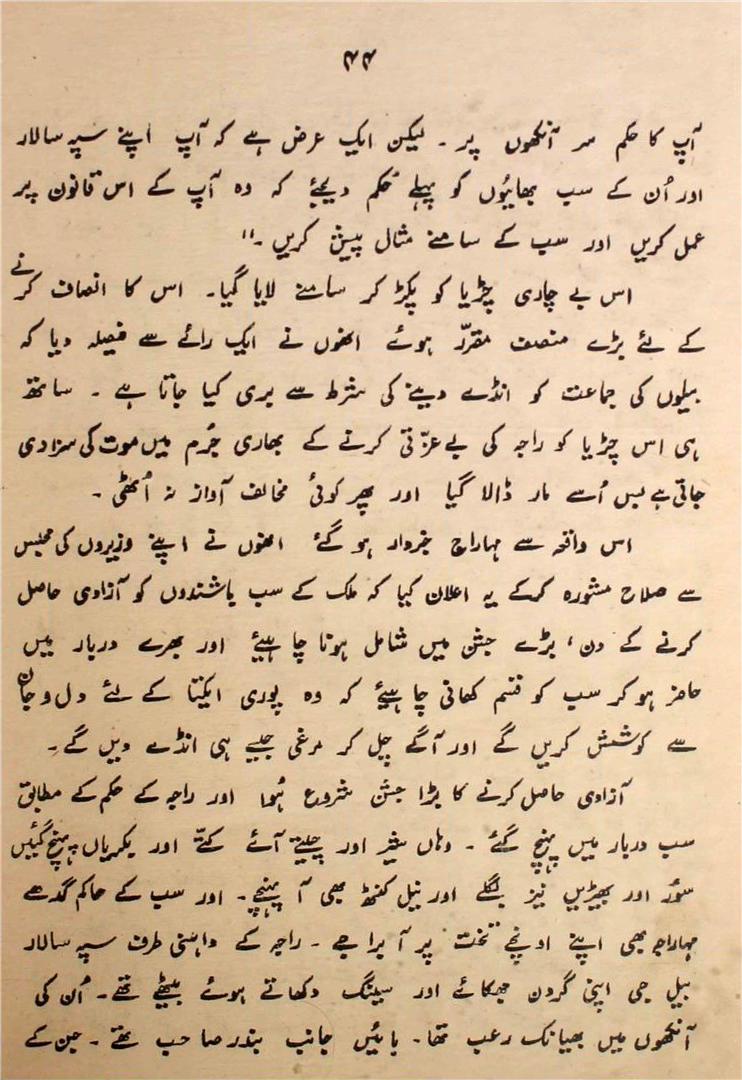 ۴۴
آپ کا حکم سر آنکھوں پر ۔ لیکن ایک عرض ہے کہ آپ اپنے سپہ سالار
اور اُن کے سب بھائیوں کو پہلے حکم دیجئے کہ وہ آپ کے اس قانون پر
عمل کریں اور سب کے سامنے مثال پیش کریں ۔"
اس بے چاری چڑیا کو پکڑ کر سامنے لایا گیا۔ اس کا انصاف کرنے
کے لئے بڑے منصف مقرّر ہوئے انھوں نے ایک رائے سے فیصلہ دیا کہ
بیلوں کی جماعت کو انڈے دینے کی شرط سے بری کیا جاتا ہے ۔ ساتھ
ہی اس چڑیا کو راجہ کی بے عزّتی کرنے کے بھاری جُرم میں موت کی سزا دی
جاتی ہے بس اُسے مار ڈالا گیا اور پھر کوئی مخالف آواز نہ اُٹھی ۔
اس واقعہ سے مہاراج خبردار ہو گئے انھوں نے اپنے وزیروں کی مجلس
سے صلاح مشورہ کرکے یہ اعلان کیا کہ ملک کے سب باشندوں کو آزادی حاصل
کرنے کے دن، بڑے جشن میں شامل ہونا چاہیئے اور بھرے دربار میں
حاضر ہو کر سب کو قسم کھانی چاہیئے کہ وہ پوری ایکتا کے لئے دل و جان
سے کوشش کریں گے اور آگے چل کر مرغی جیسے ہی انڈے دیں گے ۔
آزادی حاصل کرنے کا بڑا جشن شروع ہُوا اور راجہ کے حکم کے مطابق
سب دربار میں پہنچ گئے ۔ وہاں شیر اور چیتے آئے کتّے اور بکریاں پہنچ گئیں
سوٗر اور بھیڑیں نیز بگلے اور نیل کنٹھ بھی آ پہنچے ۔ اور سب کے حاکم گدھے
مہاراجہ بھی اپنے اونچے تخت پر آ براجے ۔ راجہ کے داہنی طرف سپہ سالار
بیل جی اپنی گردن جھکائے اور سینگ دکھاتے ہوئے بیٹھے تھے ۔ اُن کی
آنکھوں میں بھیانک رعب تھا ۔ بائیں جانب بندر صاحب تھے ۔ جن کے